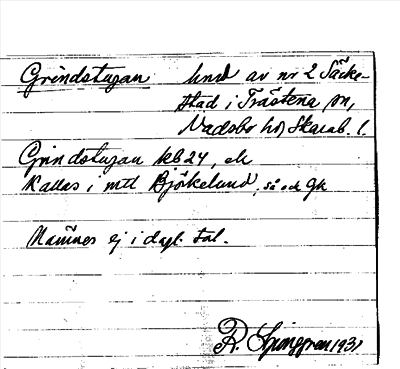 Grindstugan   under av nr 2 Säcke-
stad i Trästena sn,
Vadsbo hd, Skarab. l.
Grindstugan kb 24, ek
Kallas i mtl Björkelund, så ock Gk
Namnes ej i dagl. tal.
R. Ljunggren 1931